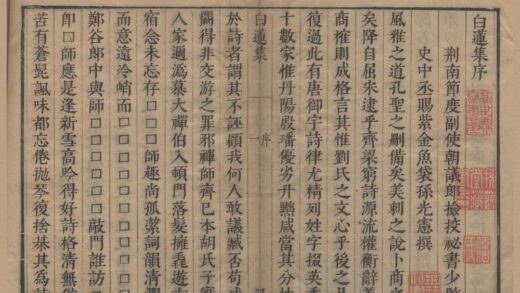 白蓮集序
荊南節度副使朝議郎檢挍祕書少
史中丞賜紫金魚袋孫光憲撰
風雅之道孔聖之刪備矣美刺之說卜商之
矣降自屈朱逮乎齊梁窮詩源流權衡辭義
商榷則成格言其惟劉氏之文心乎後之品
復過此有唐御宇詩律尤精列姓字掇英秀
十數家惟丹陽殷璠優劣升黜咸當其分
白蓮集 序 一
於詩者謂其不誣顧我何人敢議臧否苟成
闕得非交游之罪邪禪師齊已本胡氏子實
人家邇潙慕大禪伯入頓門落髮擁毳遊
宿念未忘存口口口師趣尚孤絜詞韻清潤
而意遠冷峭而口口口口口口口口口口
鄭谷郎中與師口口口口口敲門誰訪口
即口師應是逢新雪高吟得好詩格清無
苦有蒼髭諷味都忘倦拋琴復捨棊其為